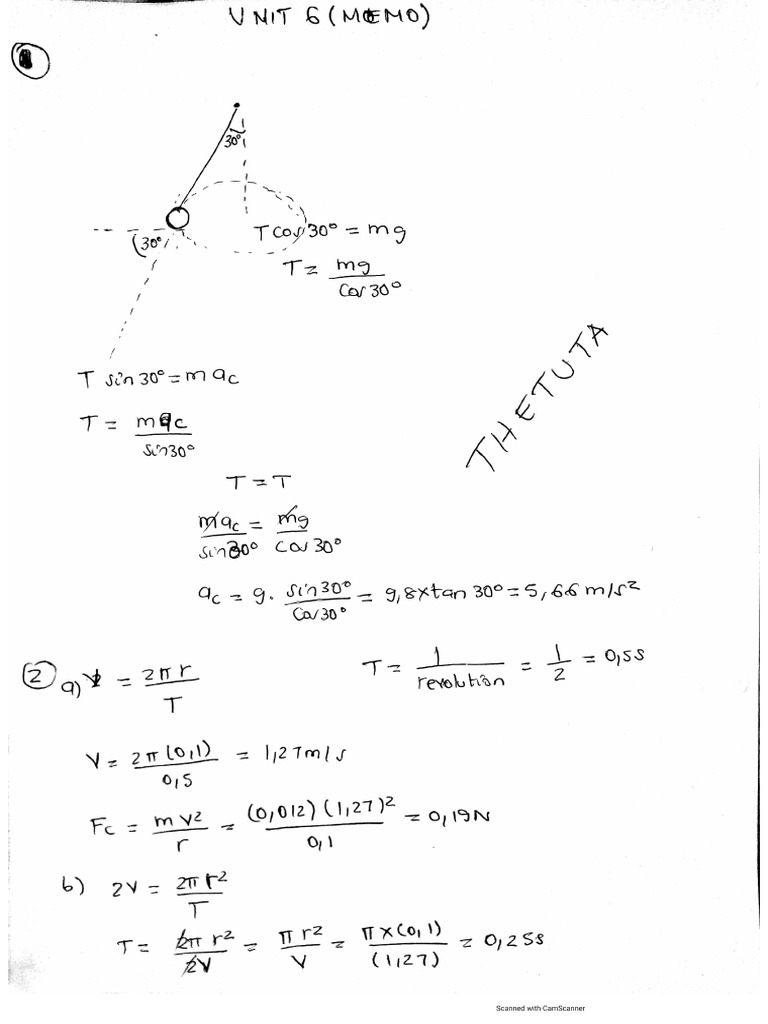 UNIT 6 (MEMO)
1
30°
30°
T cos 30° = mg
T = mg / cos 30°
T sin 30° = m ac
T = mac / sin 30°
THETUTA
T = T
mac / sin 30° = mg / cos 30°
ac = g. sin 30° / cos 30° = 9,8 x tan 30° = 5,66 m/s²
2 a) V = 2πr / T
T = 1 / revolution = 1/2 = 0,5s
V = 2π(0,1) / 0,5 = 1,27m/s
Fc = mv² / r = (0,012)(1,27)² / 0,1 = 0,19N
b) 2V = 2πr² / T
T = 2πr² / 2V = πr² / V = π×(0,1) / (1,27) = 0,25s
Scanned with CamScanner